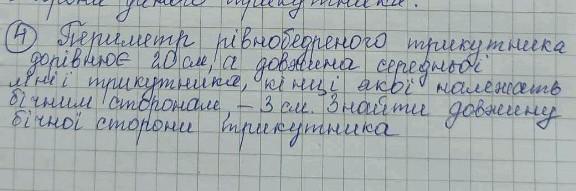 сторони даного трикутника.
4 Периметр рівнобедреного трикутника
дорівнює 20 см, а довжина середньої
лінії трикутника, кінці якої належать
бічним сторонам, – 3 см. Знайти довжину
бічної сторони трикутника